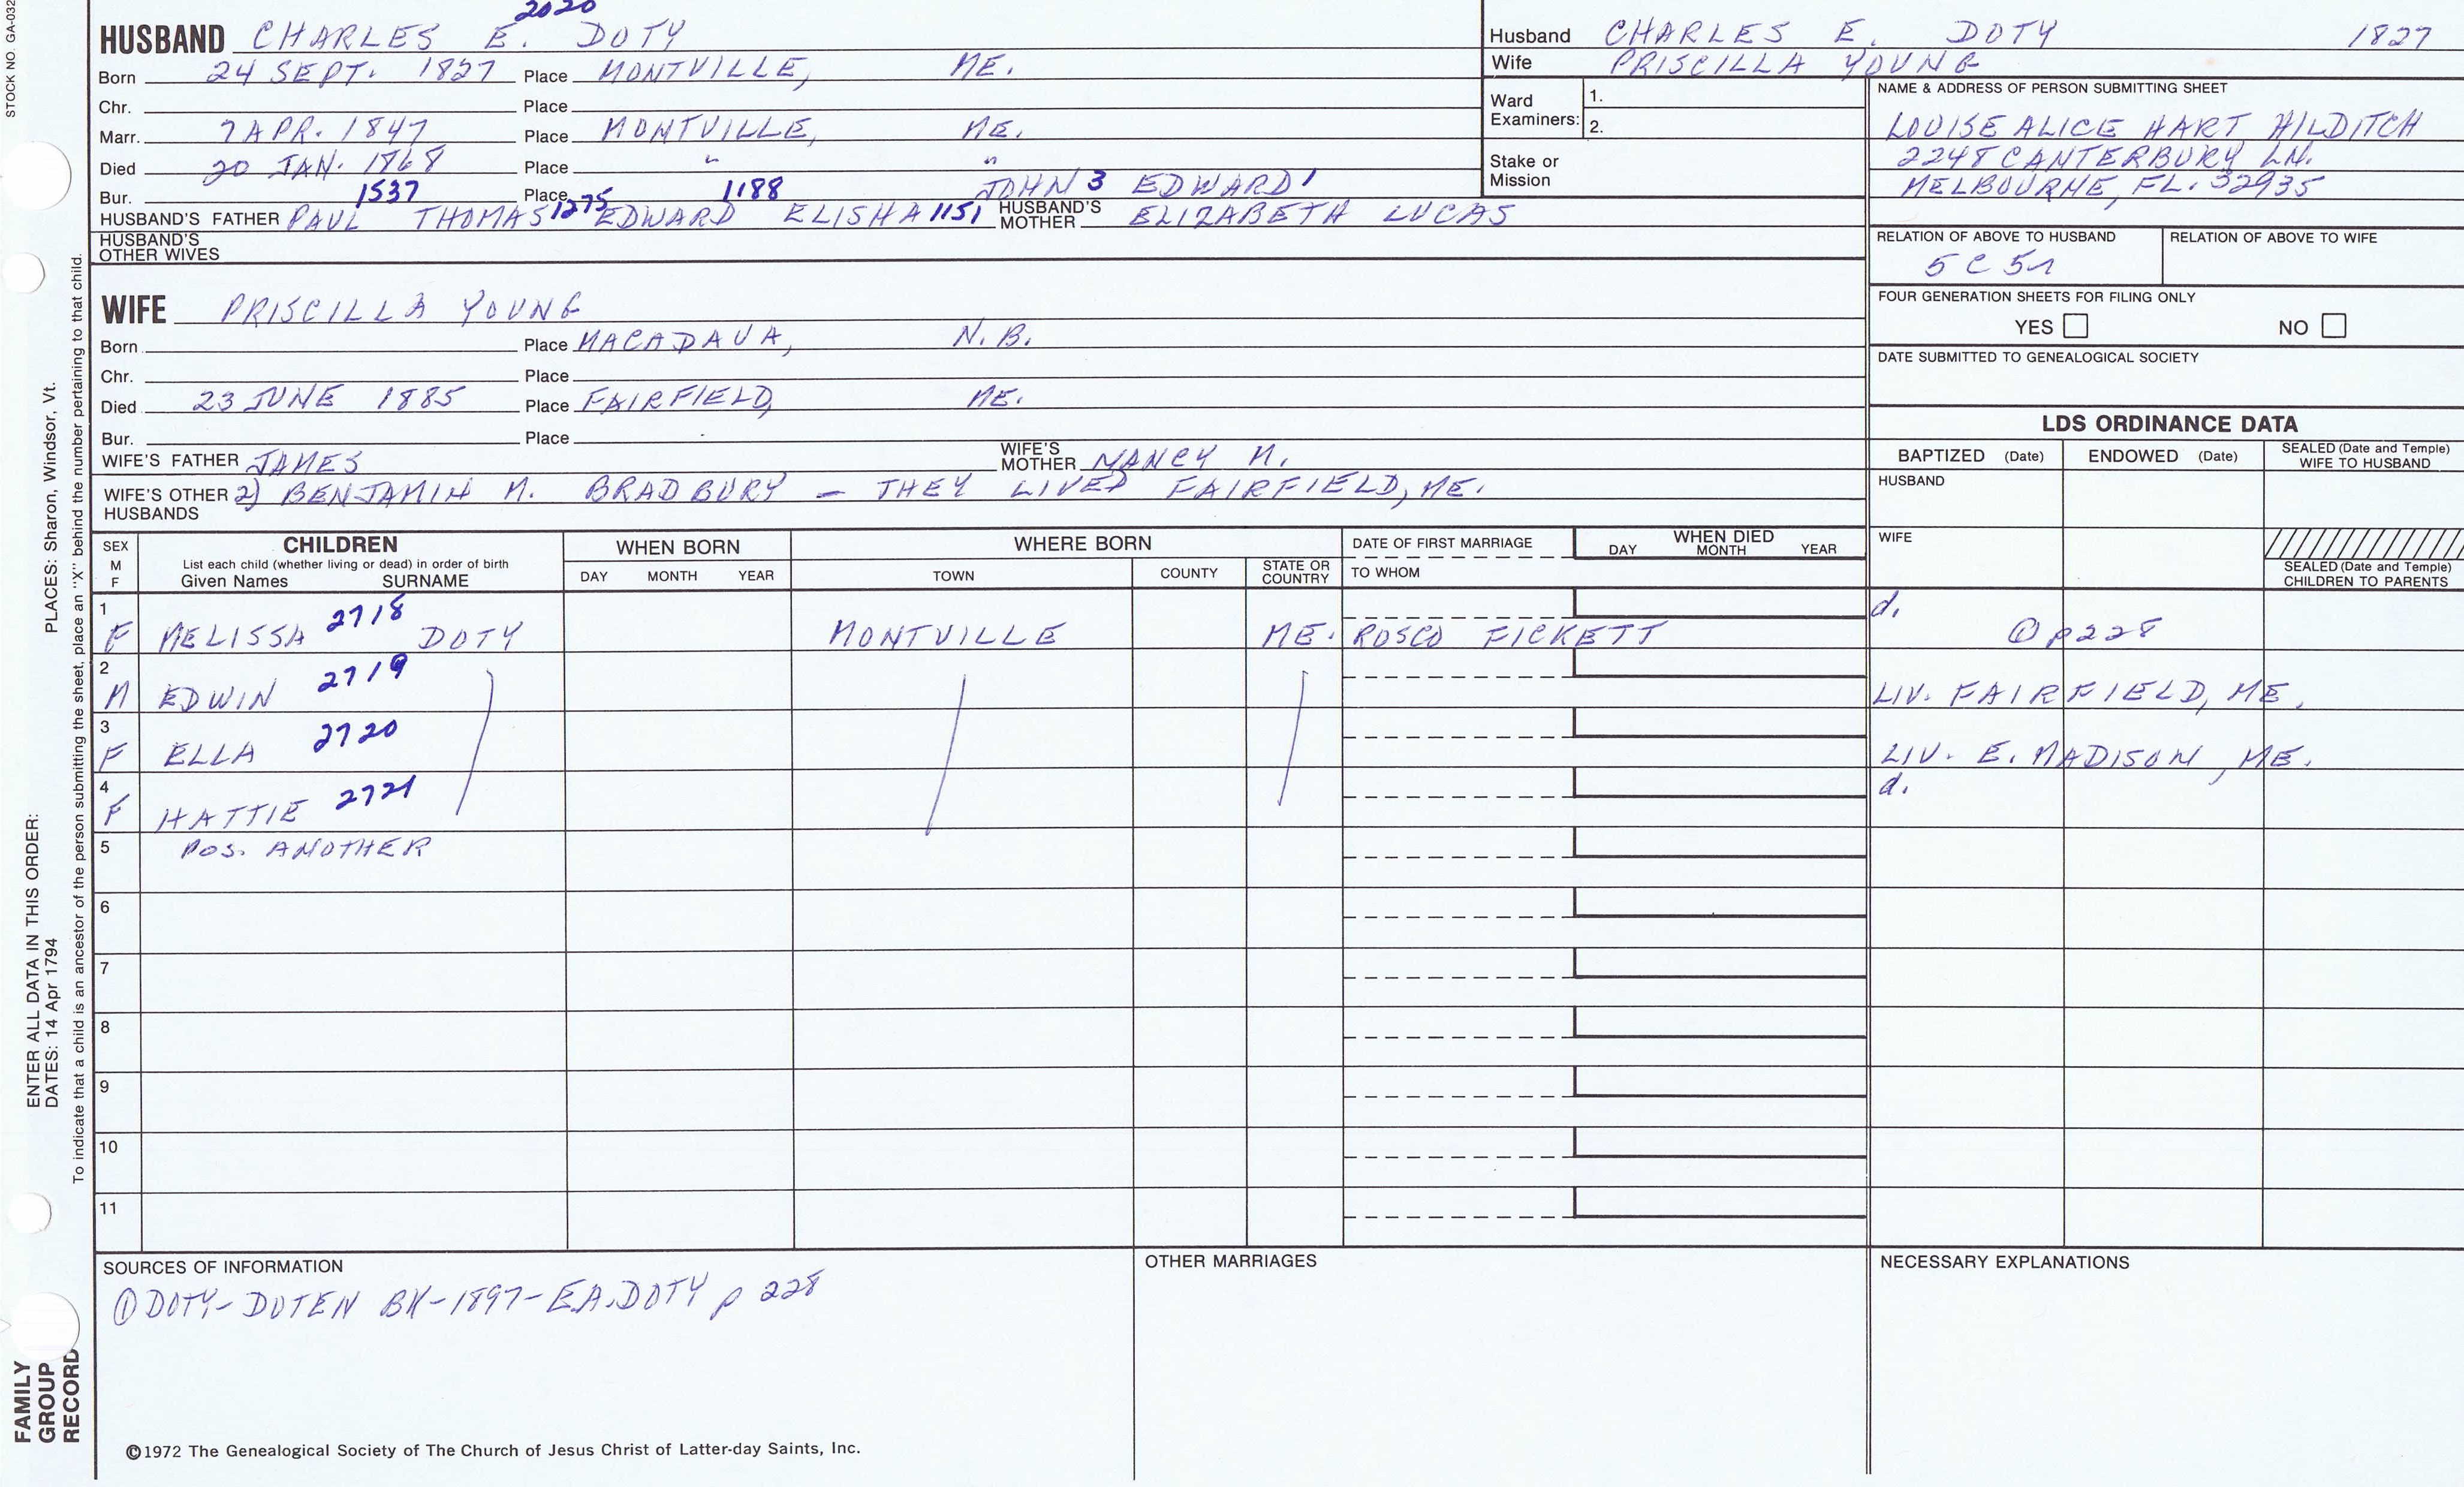 STOCK NO. GA-032
2020
HUSBAND CHARLES E. DOTY
Born 24 SEPT. 1827 Place MONTVILLE, ME.
Chr. Place
Marr. 7 APR. 1847 Place MONTVILLE, ME.
Died 20 JAN. 1868 Place " "
Bur. 1537 Place 1275 1188 JOHN 3 EDWARD 1
HUSBAND'S FATHER PAUL THOMAS EDWARD ELISHA 1151 HUSBAND'S MOTHER ELIZABETH LUCAS
HUSBAND'S OTHER WIVES
WIFE PRISCILLA YOUNG
Born Place MACADAVA, N.B.
Chr. Place
Died 23 JUNE 1885 Place FAIRFIELD, ME.
Bur. Place
WIFE'S FATHER JAMES WIFE'S MOTHER NANCY M.
WIFE'S OTHER HUSBANDS 2) BENJAMIN M. BRADBURY – THEY LIVED FAIRFIELD, ME.
Husband CHARLES E. DOTY 1827
Wife PRISCILLA YOUNG
Ward Examiners: 1.
2.
Stake or Mission
NAME & ADDRESS OF PERSON SUBMITTING SHEET
LOUISE ALICE HART HILDITCH
2248 CANTERBURY LN.
MELBOURNE, FL. 32935
RELATION OF ABOVE TO HUSBAND RELATION OF ABOVE TO WIFE
5 C 5r
FOUR GENERATION SHEETS FOR FILING ONLY
YES NO
DATE SUBMITTED TO GENEALOGICAL SOCIETY
LDS ORDINANCE DATA
BAPTIZED (Date) ENDOWED (Date) SEALED (Date and Temple) WIFE TO HUSBAND
HUSBAND
WIFE
SEALED (Date and Temple) CHILDREN TO PARENTS
SEX M F
CHILDREN
List each child (whether living or dead) in order of birth
Given Names SURNAME
WHEN BORN
DAY MONTH YEAR
WHERE BORN
TOWN COUNTY STATE OR COUNTRY
DATE OF FIRST MARRIAGE
TO WHOM
WHEN DIED
DAY MONTH YEAR
1 F MELISSA 2718 DOTY MONTVILLE ME. ROSCO FICKETT d. ① p228
2 M EDWIN 2719 LIV. FAIRFIELD, ME.
3 F ELLA 2720 LIV. E. MADISON, ME.
4 F HATTIE 2721 d.
5 POS. ANOTHER
6
7
8
9
10
11
SOURCES OF INFORMATION
① DOTY-DOTEN BK-1897-E.A.DOTY p 228
OTHER MARRIAGES
NECESSARY EXPLANATIONS
©1972 The Genealogical Society of The Church of Jesus Christ of Latter-day Saints, Inc.
PLACES: Sharon, Windsor, Vt.
ENTER ALL DATA IN THIS ORDER:
DATES: 14 Apr 1794
To indicate that a child is an ancestor of the person submitting the sheet, place an "X" behind the number pertaining to that child.
FAMILY
GROUP
RECORD